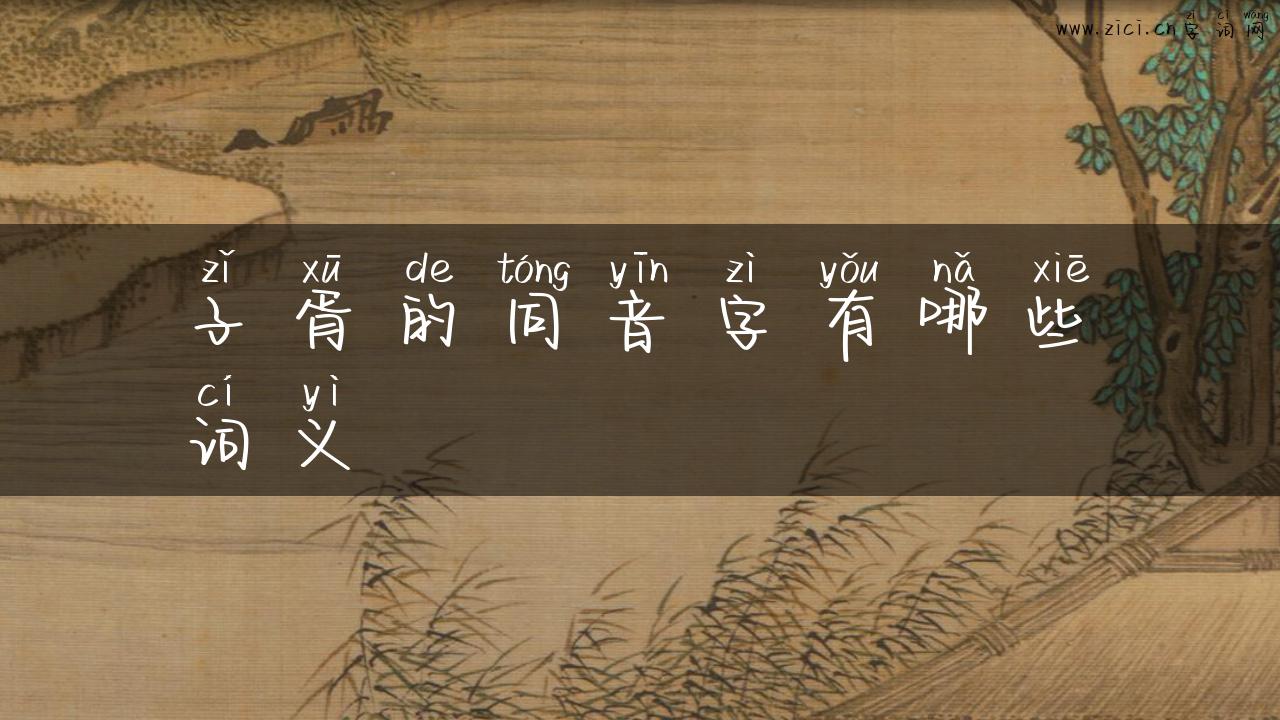 zì cí wǎng
www.zici.cn 字词网
zǐ xū de tóng yīn zì yǒu nǎ xiē
子胥的同音字有哪些
cí yì
词义